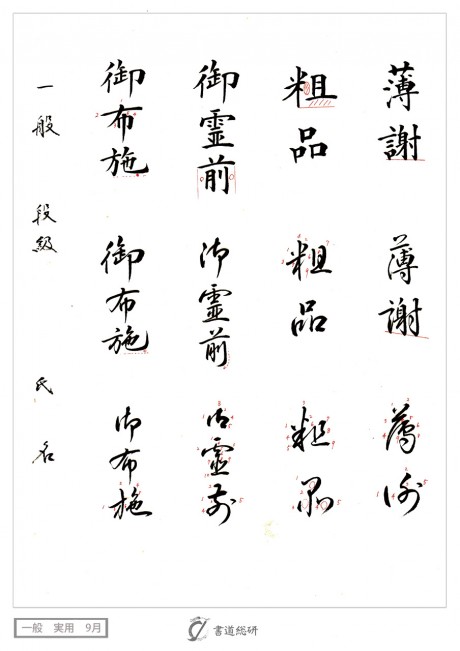 薄謝
薄謝
薄謝
粗品
粗品
粗品
御霊前
御霊前
御霊前
御布施
御布施
御布施
一般 段級 氏名
一般 実用 9月
書道総研